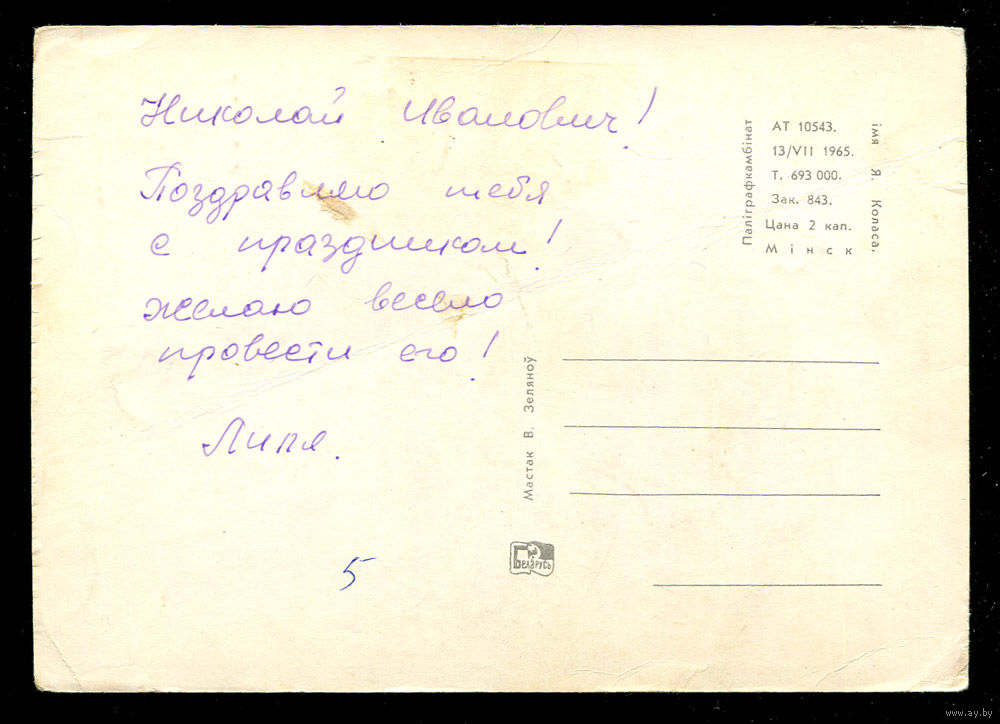 Николай Иванович!
Поздравляю тебя
с праздником!
желаю весело
провести его!
Лиля.
5
Мастак В. Зеляноў
Беларусь
Паліграфкамбінат
імя Я. Коласа.
АТ 10543.
13/VII 1965.
Т. 693 000.
Зак. 843.
Цана 2 кап.
Мінск
www.ay.by